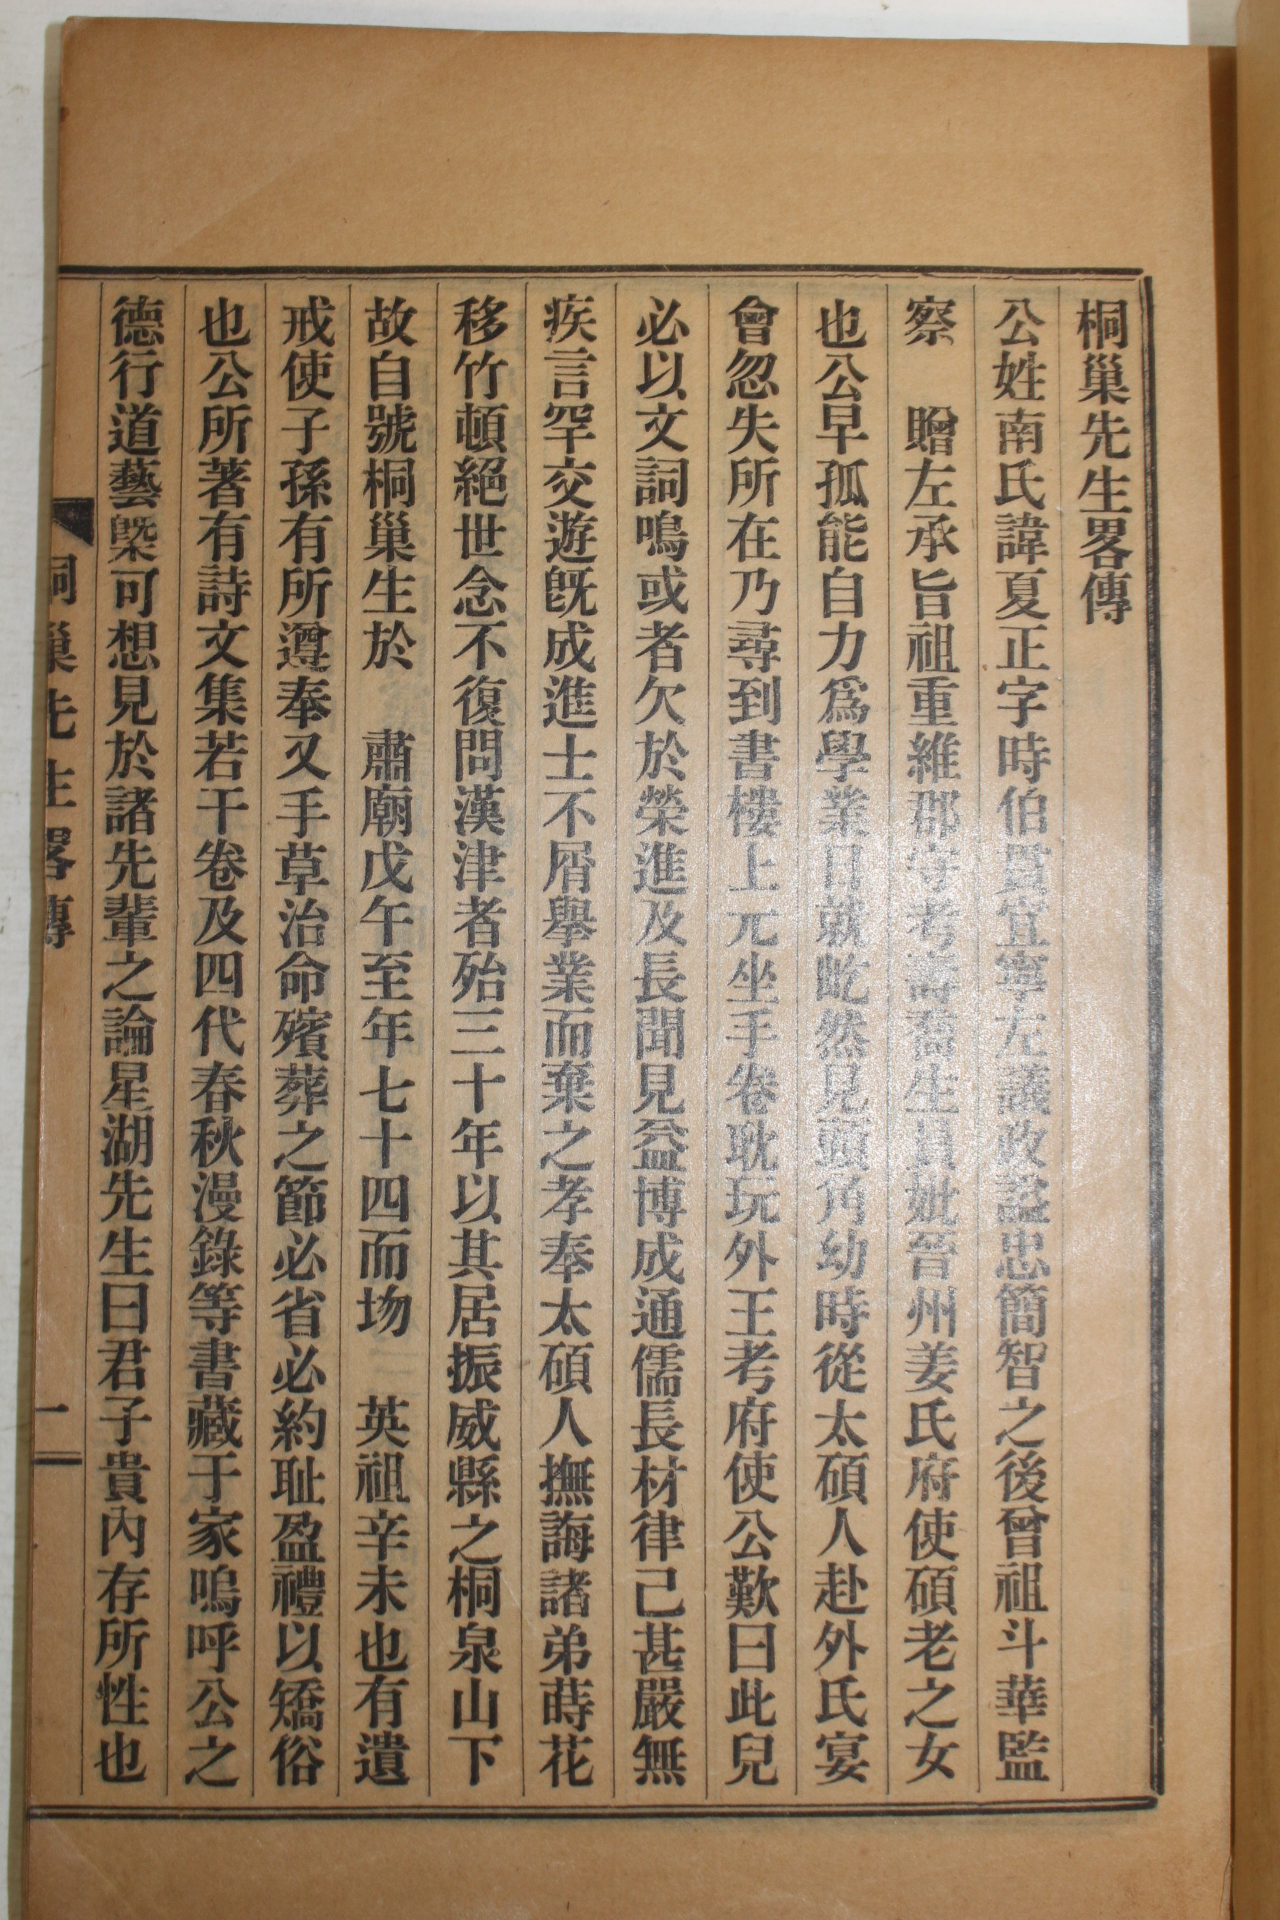 桐巢先生畧傳
公姓南氏諱夏正字時伯貫宜寧左議政諡忠簡智之後曾祖斗華監
察　贈左承旨祖重維郡守考壽喬生員妣晉州姜氏府使碩老之女
也公早孤能自力爲學業日就屹然見頭角幼時從太碩人赴外氏宴
會忽失所在乃尋到書樓上兀坐手卷耽玩外王考府使公歎曰此兒
必以文詞鳴或者欠於榮進及長聞見益博成通儒長材律己甚嚴無
疾言罕交遊旣成進士不屑擧業而棄之孝奉太碩人撫誨諸弟蒔花
移竹頓絕世念不復問漢津者殆三十年以其居振威縣之桐泉山下
故自號桐巢生於　肅廟戊午至年七十四而歿　英祖辛未也有遺
戒使子孫有所遵奉又手草治命殯葬之節必省必約耻盈禮以矯俗
也公所著有詩文集若干卷及四代春秋漫錄等書藏于家嗚呼公之
德行道藝槩可想見於諸先輩之論星湖先生曰君子貴內存所性也
桐巢先生畧傳
一